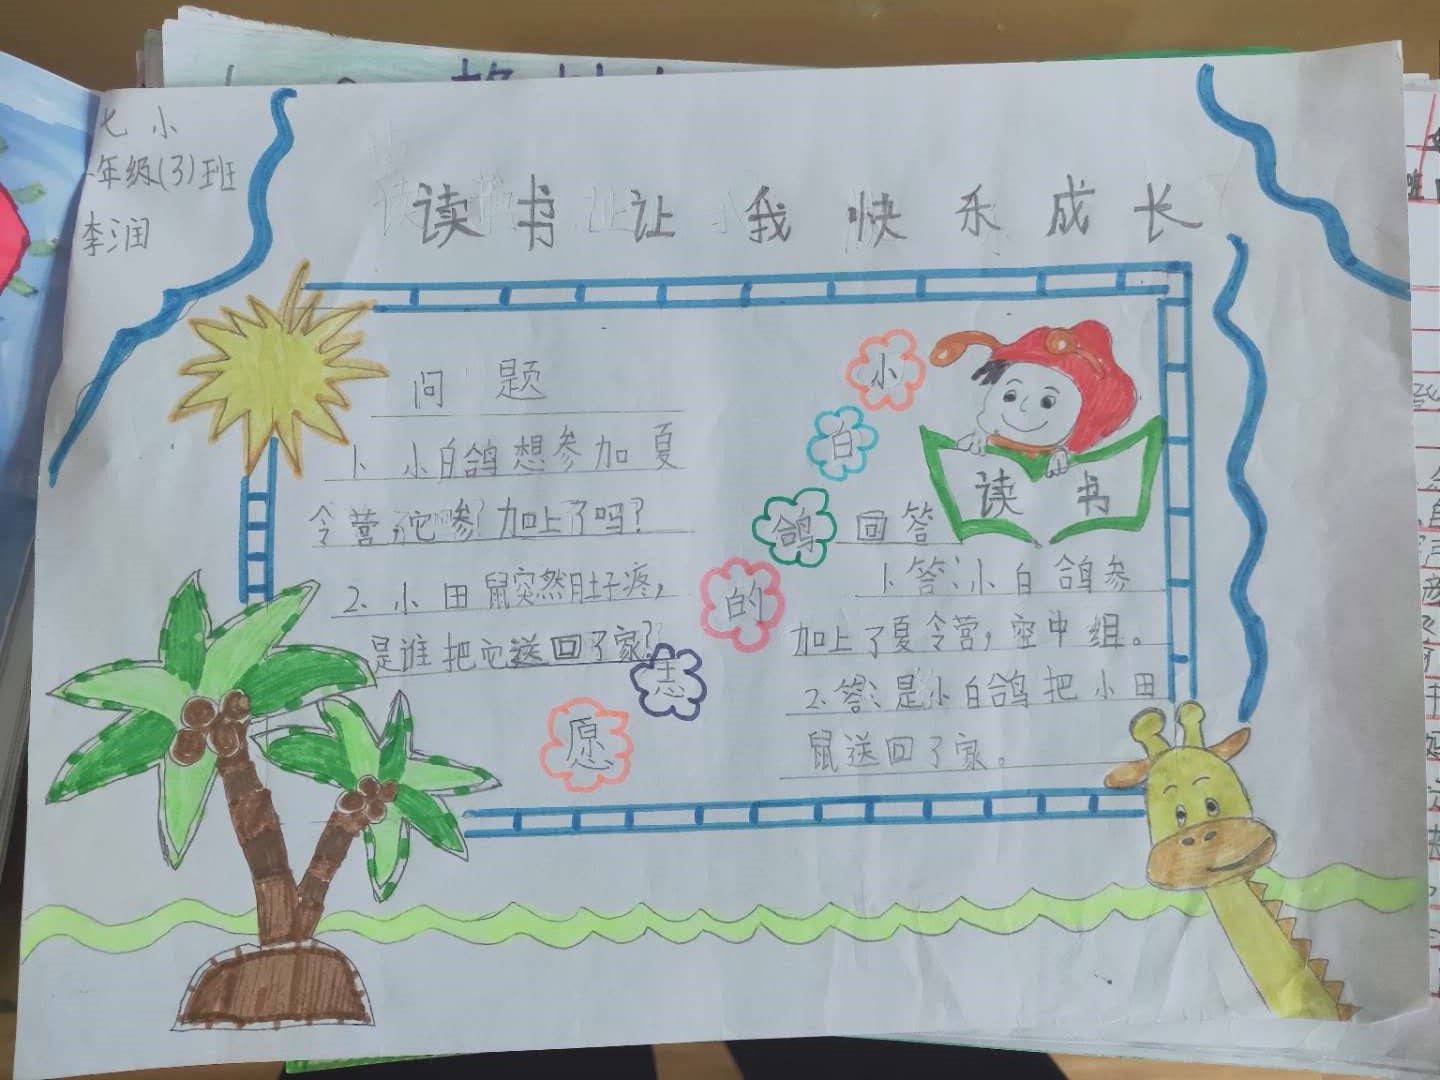 七小
年级(3)班
李润
读书让我快乐成长
小白鸽的志愿
读书
问题
1、小白鸽想参加夏
令营,它参加上了吗?
2、小田鼠突然肚子疼,
是谁把它送回了家?
回答
1、答:小白鸽参
加上了夏令营,空中组。
2、答:是小白鸽把小田
鼠送回了家。